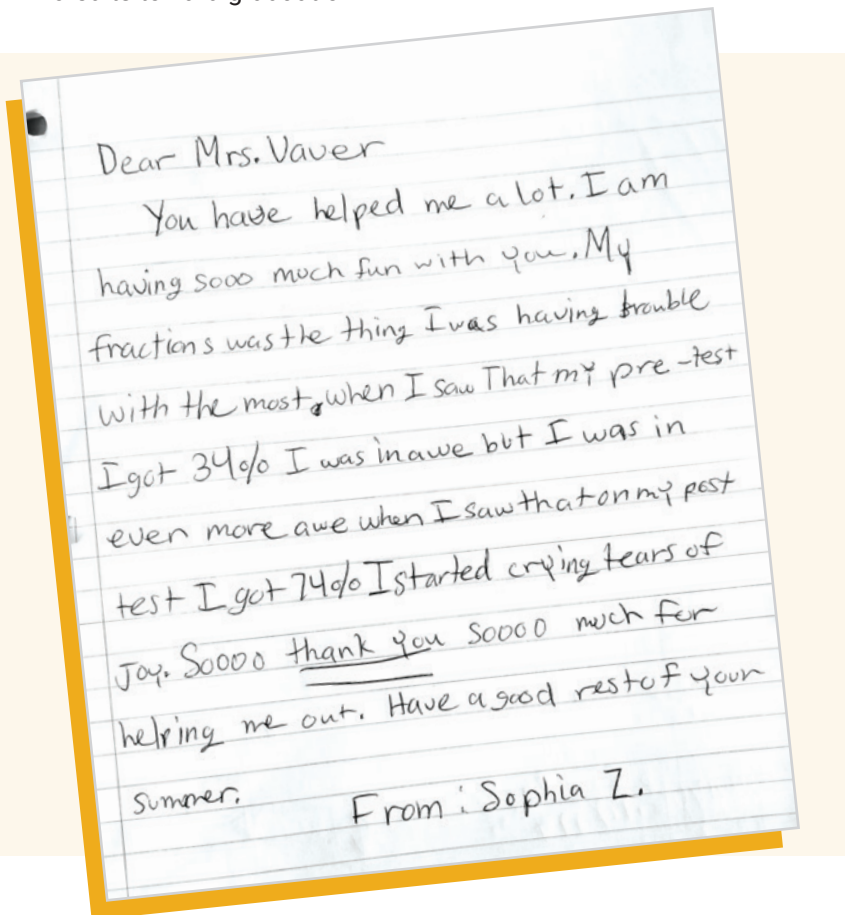 Dear Mrs. Vaver
You have helped me a lot. I am
having sooo much fun with you. My
fractions was the thing I was having trouble
with the most, when I saw That my pre-test
I got 34% I was in awe but I was in
even more awe when I saw that on my post
test I got 74% I started crying tears of
Joy. Soooo thank you soooo much for
helping me out. Have a good rest of your
summer.
From: Sophia Z.